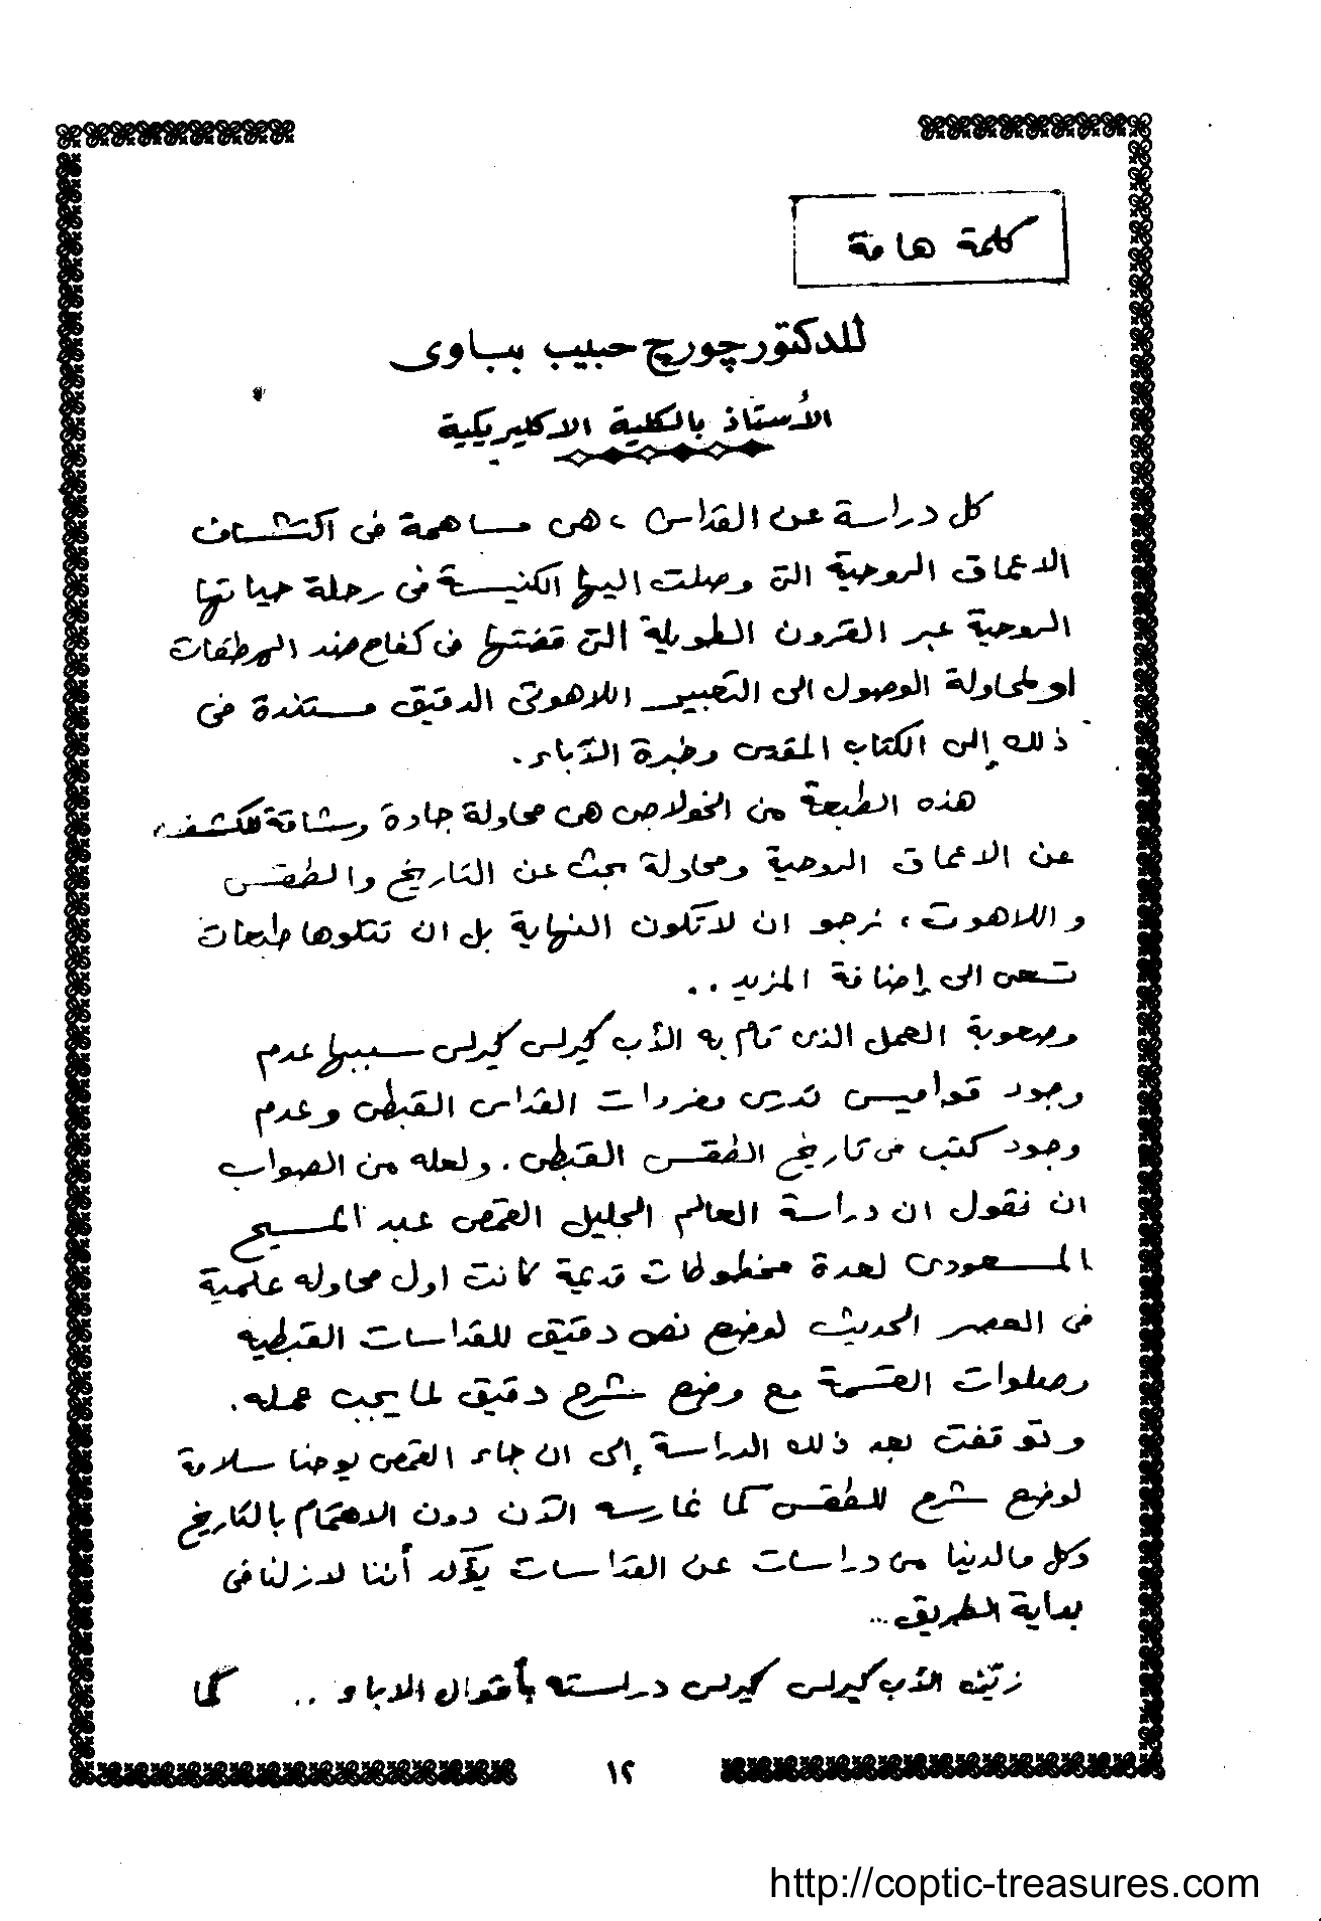 كلمة هامة
للدكتور چورچ حبيب بباوى
الأستاذ بالكلية الاكليريكية
كل دراسة عن القداس ، هى مساهمة فى اكتشاف
الاعماق الروحية التى وصلت اليها الكنيسة فى رحلة حياتها
الروحية عبر القرون الطويلة التى قضتها فى كفاح ضد الهرطقات
او لمحاولة الوصول الى التعبير اللاهوتى الدقيق مستندة فى
ذلك إلى الكتاب المقدس وخبرة الآباء .
هذه الطبعة من الخولاجى هى محاولة جادة وشاقة للكشف
عن الاعماق الروحية ومحاولة بحث عن التاريخ والطقس
واللاهوت ، نرجو ان لا تكون النهاية بل ان تتلوها طبعات
تسعى الى إضافة المزيد ..
وصعوبة العمل الذى قام به الأب كيرلس كيرلس سببها عدم
وجود قواميس تدرس مفردات القداس القبطى وعدم
وجود كتب فى تاريخ الطقس القبطى . ولعله من الصواب
ان نقول ان دراسة العالم الجليل القمص عبد المسيح
المسعودى لعدة مخطوطات قديمة كانت اول محاوله علمية
فى العصر الحديث لوضع نص دقيق للقداسات القبطيه
وصلوات القسمة مع وضع شرح دقيق لما يجب عمله .
وتوقفت بعد ذلك الدراسة إلى ان جاء القمص يوحنا سلامة
لوضع شرح للطقس كما نمارسه الآن دون الاهتمام بالتاريخ
وكل ما لدينا من دراسات عن القداسات يؤكد أننا لازلنا فى
بداية الطريق ...
زيّن الأب كيرلس كيرلس دراسته بأقوال الاباء .. كما
١٢
http://coptic-treasures.com